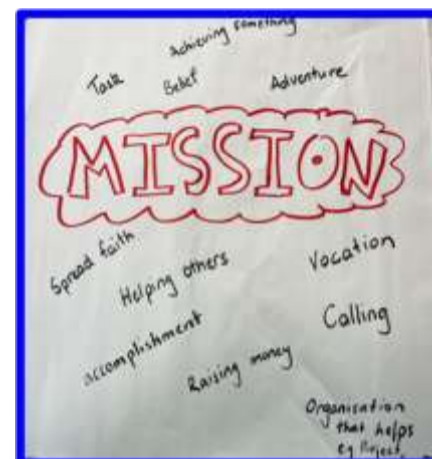 Achieving something
Task
Belief
Adventure
MISSION
Spread faith
Helping others
Vocation
accomplishment
Calling
Raising money
Organisation
that helps
eg Project